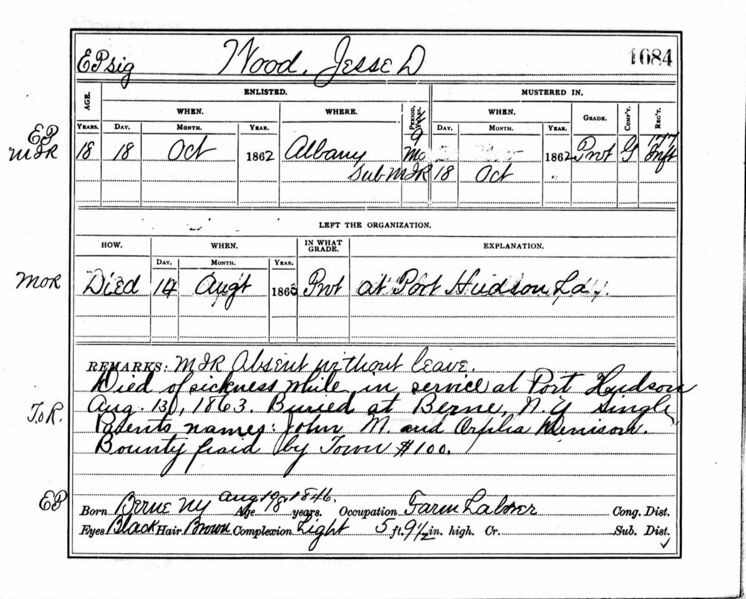 EP sig Wood, Jesse D 1084
AGE. ENLISTED. MUSTERED IN.
WHEN. WHERE. PERIOD, WHEN. GRADE. COMP'Y. REG'T.
YEARS. DAY. MONTH. YEAR. YEARS. DAY. MONTH. YEAR.
EP
MIR 18 18 Oct 1862 Albany 9 Mo 1862 Pvt G 177 Inft
Sub MIR 18 Oct "
LEFT THE ORGANIZATION.
HOW. WHEN. IN WHAT GRADE. EXPLANATION.
DAY. MONTH. YEAR.
MOR Died 14 Augt 1863 Pvt at Port Hudson La.
REMARKS: MIR Absent without leave.
Died of sickness while in service at Port Hudson
Aug. 13, 1863. Buried at Berne, N.Y. Single
T.o.R. Parents names: John M. and Orpha Denison.
Bounty paid by Town $100.
Aug 10, 1846.
EP Born Berne NY Age 18 years. Occupation Farm Laborer Cong. Dist.
Eyes Black Hair Brown Complexion Light 5 ft. 9 1/2 in. high. Cr. Sub. Dist.